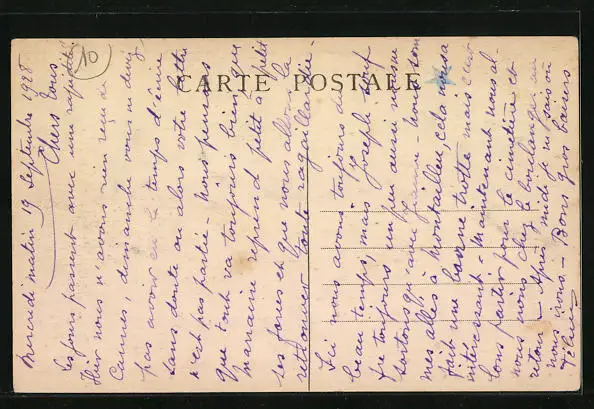 10
CARTE POSTALE
Mercredi matin 19 Septembre 1928
Chers tous
Les jours passent avec une rapidité.
Hier nous n'avons rien reçu de
Cannes, dimanche vous n'
pas avoir eu le temps d'écrire
sans doute ou alors votre lettre
n'est pas partie - Nous pensons
que tout va toujours bien, que
marraine reprend petit à petit
ses forces et que nous allons la
retrouver toute ragaillardie -
Ici nous avons toujours du
beau temps, mais Joseph
toujours un peu aussi
sortons qu'avec - nous sommes
allés à cela nous a
fait une bonne trotte mais c'est
intéressant - Maintenant nous al-
lons partir pour le cimetière et
nous irons chez le boulanger au
retour - Après midi je ne sais où
nous irons. - Bons gros baisers